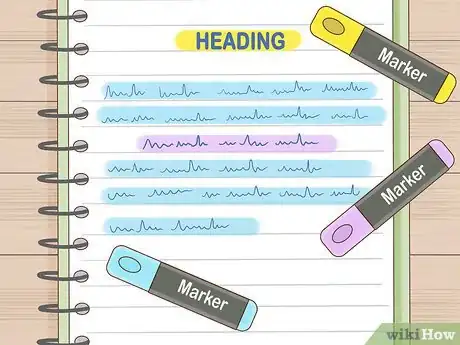 HEADING
Marker
Marker
Marker
wikiHow